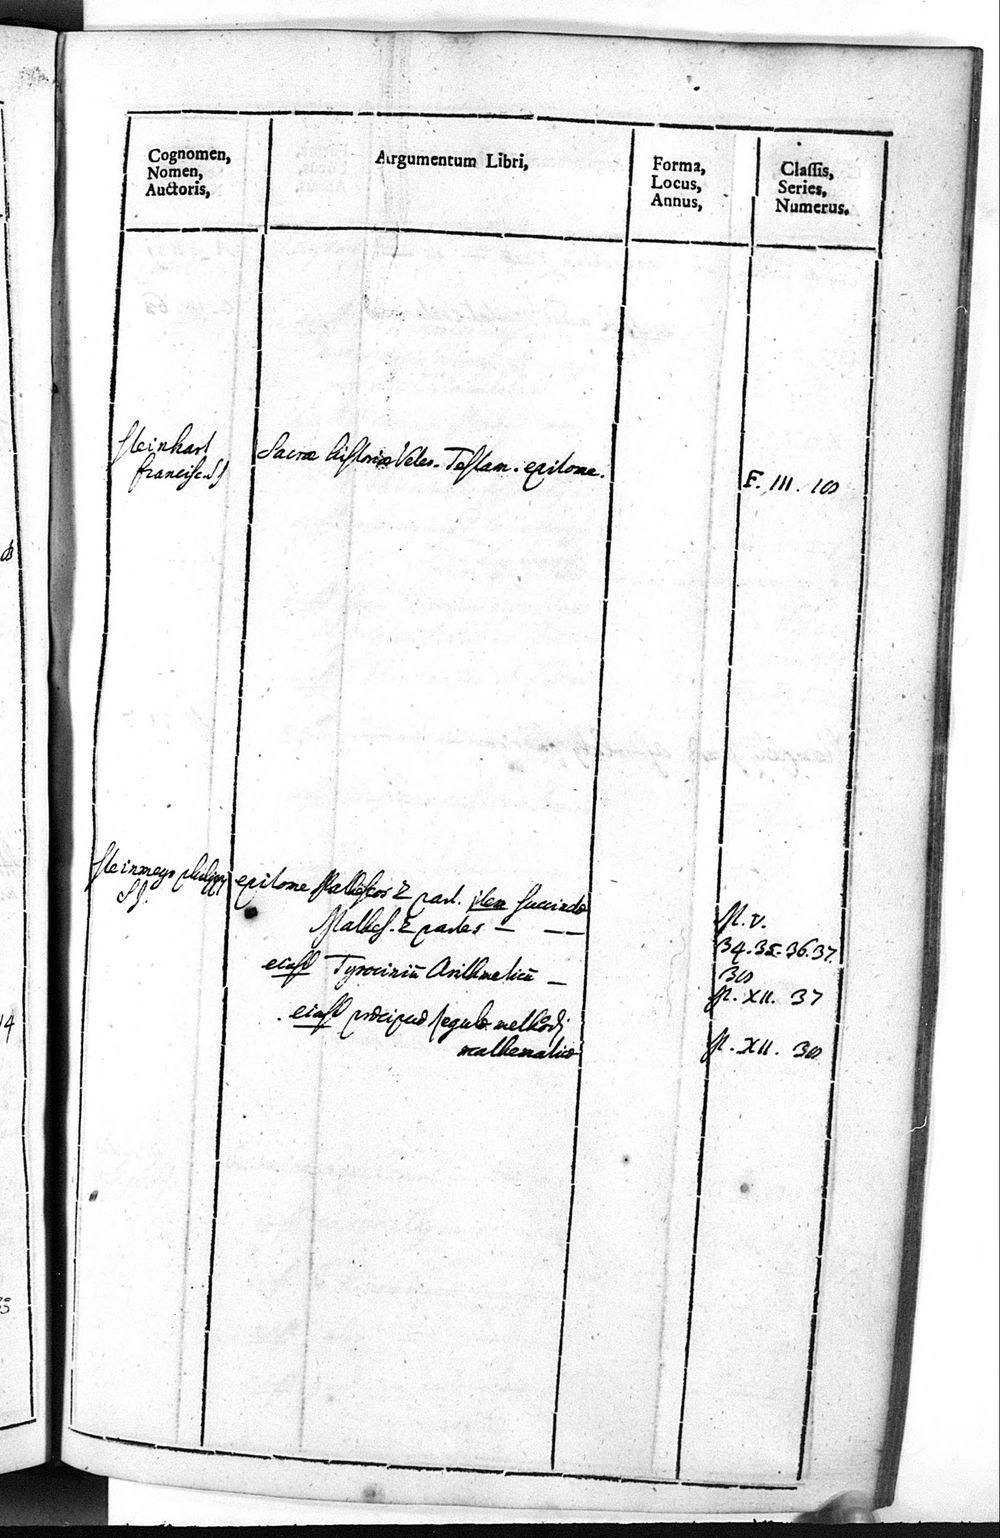 Cognomen,
Nomen,
Auctoris,
Argumentum Libri,
Forma,
Locus,
Annus,
Classis,
Series,
Numerus.
Steinhart
francisc. SJ
Sacræ historiæ Veter. Testam. epitome.
F. III. 10
Steinmeyr philipp
SJ.
epitome Matheseos 2 part. item succincta
Mathes. 2 partes — — —
M. V.
34. 35. 36. 37.
38
eiusd Tyrociniū Arithmeticū —
M. XII. 37
eiusd præcipuæ regulæ methodi
mathematicæ
M. XII. 38
14